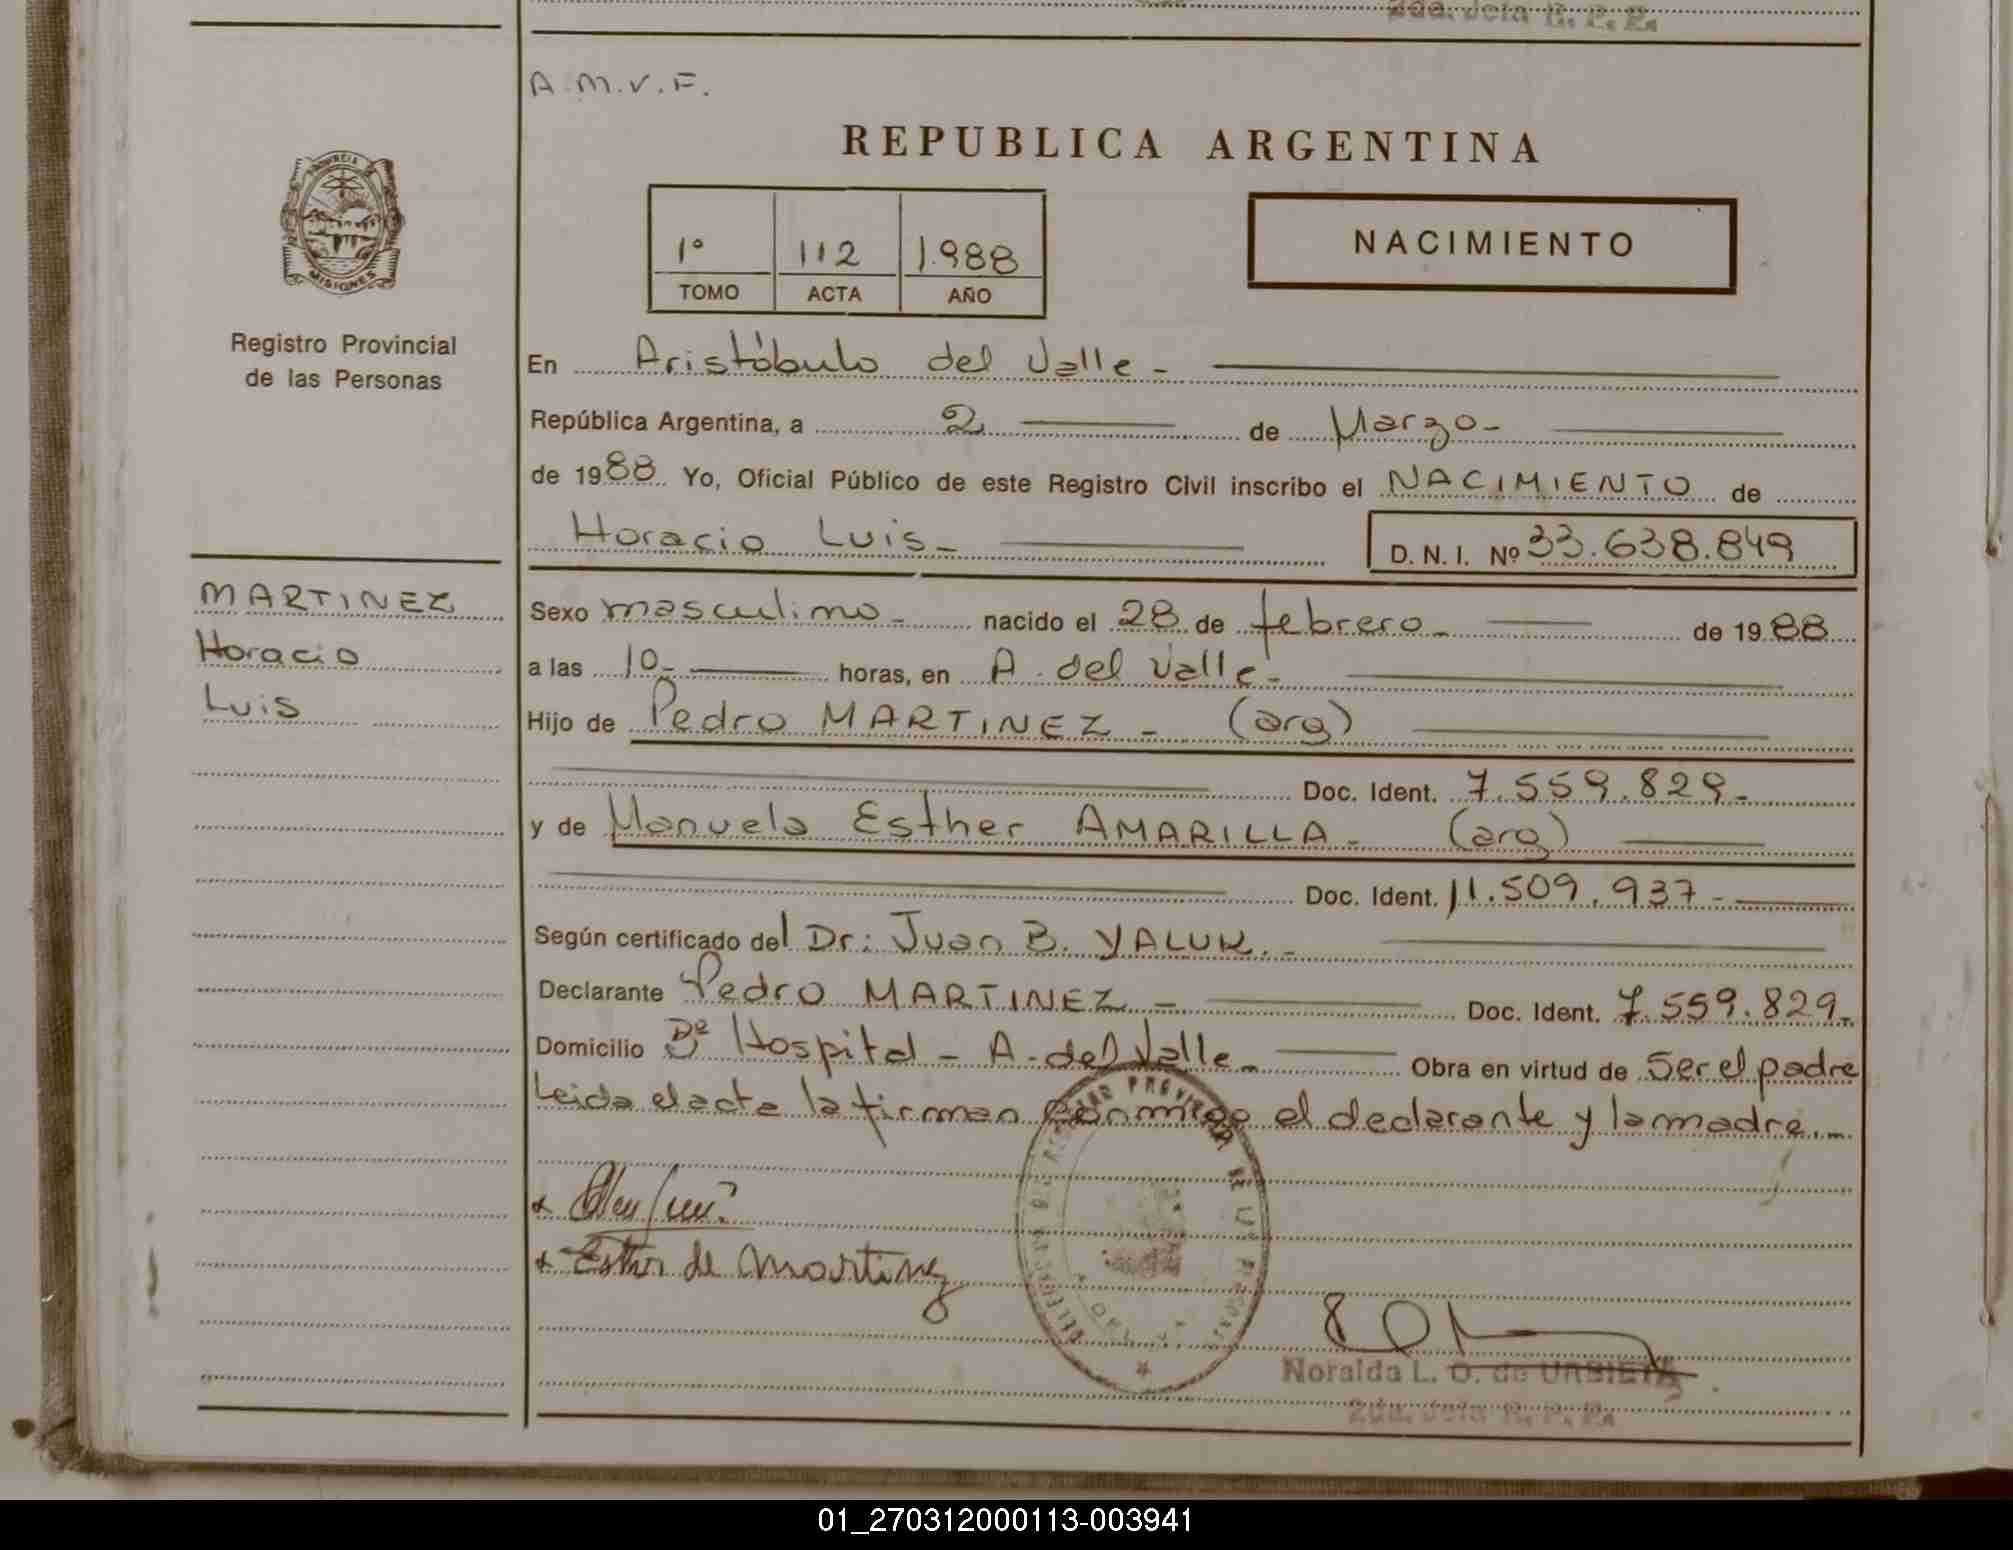 2da. Jefa R. P. P.
A.M.V.F.
REPUBLICA ARGENTINA
PROVINCIA DE
MISIONES
1º 112 1.988
TOMO ACTA AÑO
NACIMIENTO
Registro Provincial
de las Personas
En Aristóbulo del Valle-
República Argentina, a 2 de Marzo-
de 1988 Yo, Oficial Público de este Registro Civil inscribo el NACIMIENTO de
Horacio Luis- D. N. I. Nº 33.638.849
MARTINEZ
Horacio
Luis
Sexo masculino- nacido el 28 de febrero- de 1988
a las 10- horas, en A. del Valle-
Hijo de Pedro MARTINEZ- (arg)
Doc. Ident. 7.559.829-
y de Manuela Esther AMARILLA- (arg)
Doc. Ident. 11.509.937-
Según certificado del Dr: Juan B. YALUK.-
Declarante Pedro MARTINEZ- Doc. Ident. 7.559.829-
Domicilio Bº Hospital - A. del Valle- Obra en virtud de Ser el padre
Leida el acta la firman conmigo el declarante y la madre.-
Esther de Martinez
Noralda L. O. de URBIETA
2da. Jefa R. P. P.
01_270312000113-003941